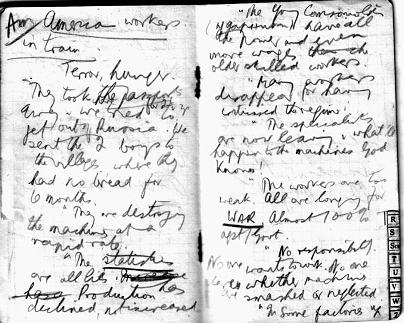 An America workers
in train.
Terror, hunger.
"They took the passport
away" we tried to
get out of Russia. He
sent the 2 boys to
the villages where they
had no bread for
6 months.
"They are destroying
the machines at a
rapid rate.
"The statistics
are all lies.
Production has
declined, not increased
"The Young Communists
have all
the power and even
more wages
older skilled workers
"Many workers
disappear for having
criticised the regime.
"The specialists
are now leaving & what'll
happen to the machines God
knows!
"The workers are too
weak. All are longing for
WAR. Almost 100%
agst Govt.
No responsibility.
No one wants to work. No one
cares whether machines
are smashed or neglected.
"In some factories
R
S
T
U
V
W